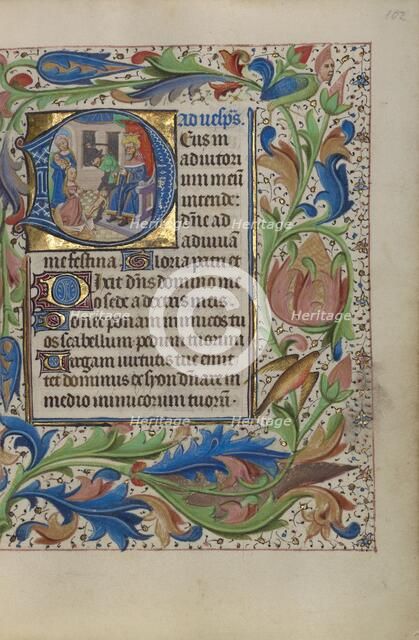 102
Ad uesp̄s
Eus in
adiutori
um meū
intende:
Dn̄e ad
adiuuā
me festina Gloria patri et
Dixit dn̄s domino me
o sede a dextris meis.
Donec ponam inimicos tu
os scabellum pedum tuorum
Uirgam uirtutis tue emit
tet dominus de syon dn̄are in
medio inimicorum tuorū.
Heritage
Heritage
Heritage
Heritage
Heritage
Heritage